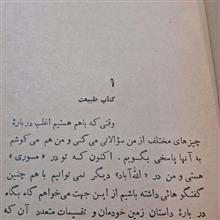 ۱
کتاب طبیعت
وقتی که باهم هستیم اغلب در بارهٔ
چیزهای مختلف از من سؤالاتی می کنی و من هم می کوشم
به آنها پاسخی بگویم . اکنون که تو در « مسوری »
هستی و من در « الله آباد » دیگر نمی توانیم با هم چنین
گفتگو هائی داشته باشیم از این جهت می خواهم گاه بگاه
در بارهٔ داستان زمین خودمان و تقسیمات متعدد آن که